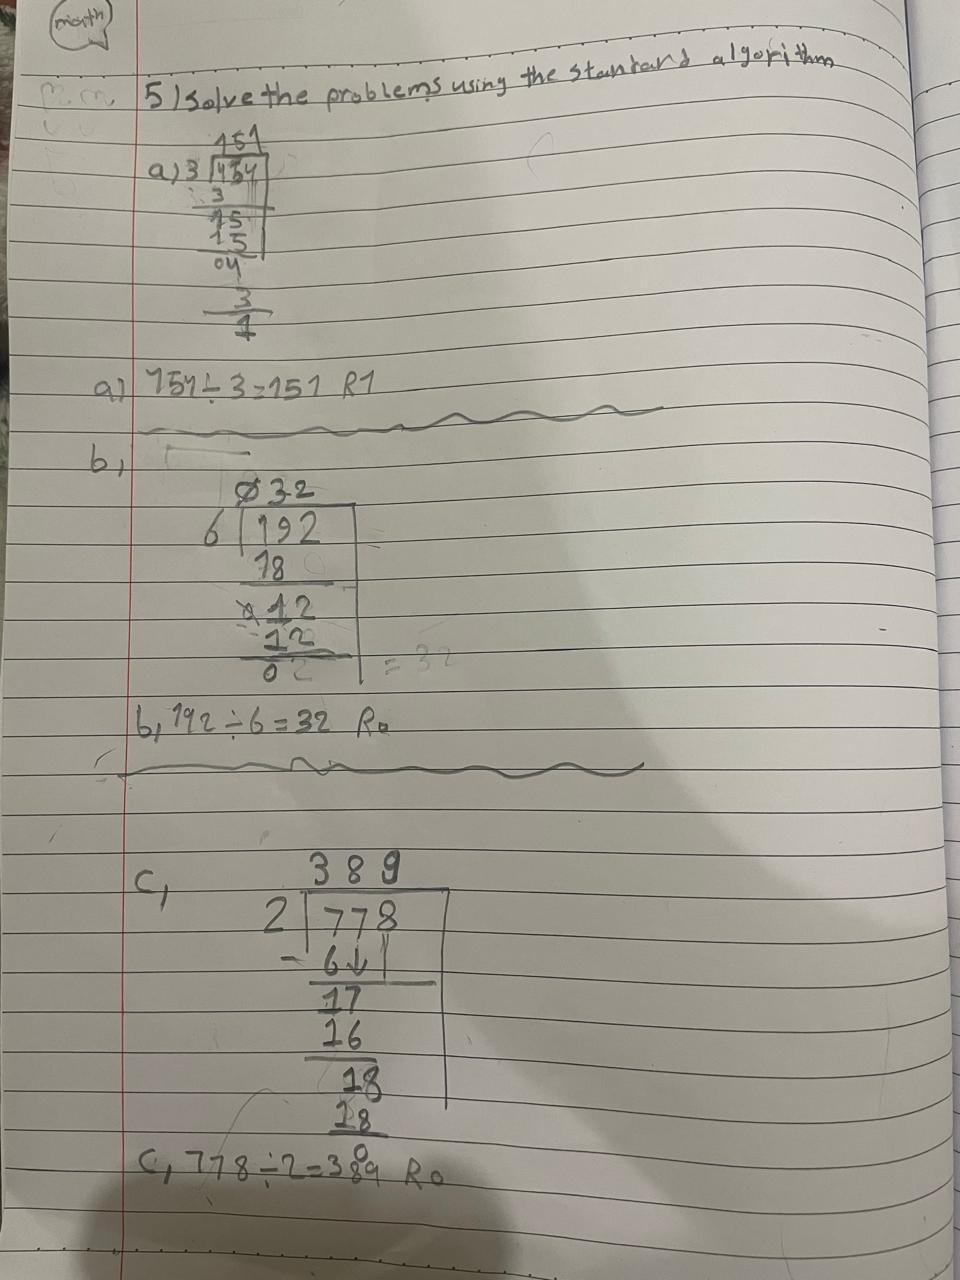 month
5) Solve the problems using the standard algorithm
151
a) 3 454
3
15
15
04
3
1
a) 454 ÷ 3 = 151 R1
b,
032
6 192
18
012
12
02
= 32
b, 192 ÷ 6 = 32 R0
389
c,
2 778
- 6↓
17
16
18
18
0
c, 778 ÷ 2 = 389 R0